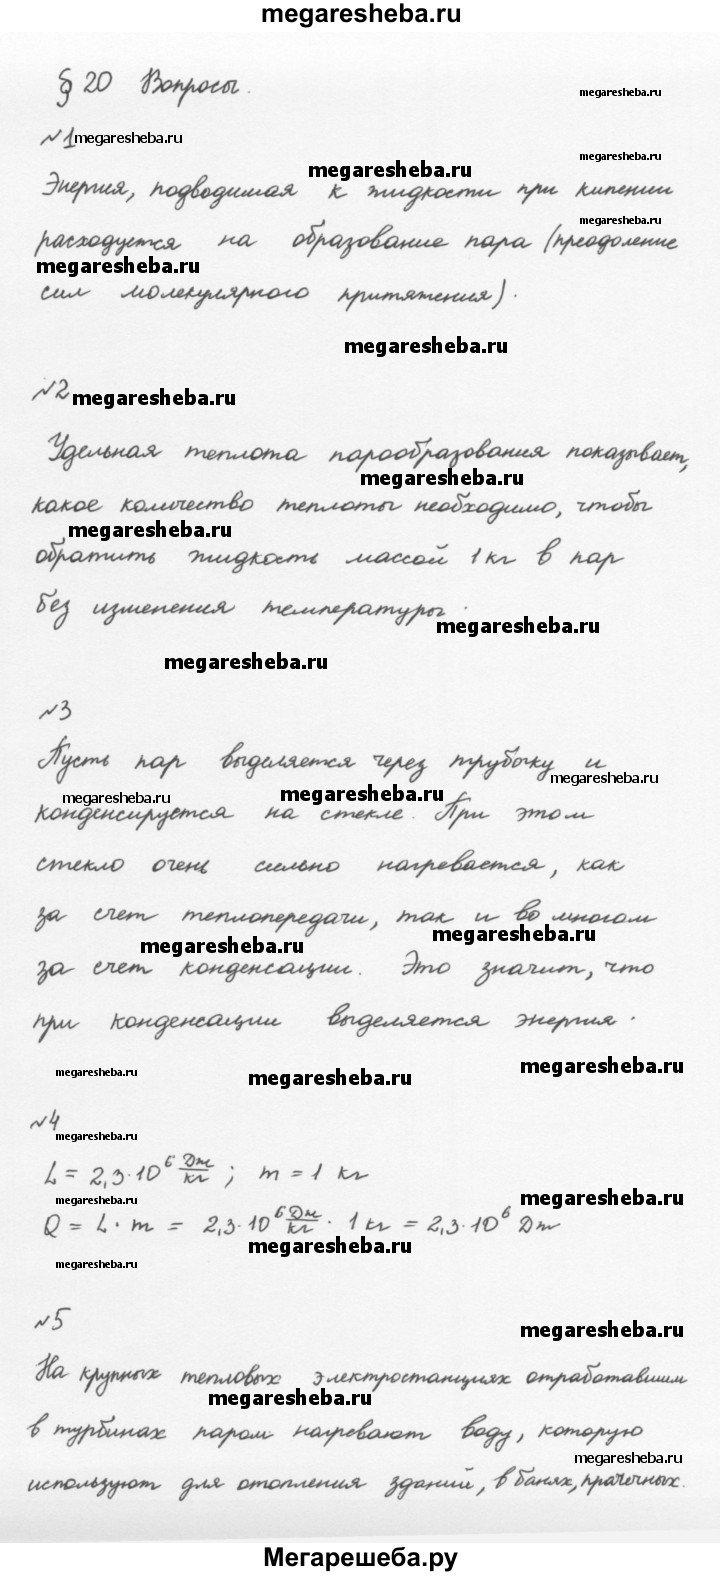 megaresheba.ru
§ 20 Вопросы.
megaresheba.ru
№1 megaresheba.ru
megaresheba.ru
megaresheba.ru
Энергия, подводимая к жидкости при кипении
megaresheba.ru
расходуется на образование пара (преодоление
megaresheba.ru
сил молекулярного притяжения).
megaresheba.ru
№2 megaresheba.ru
Удельная теплота парообразования показывает,
megaresheba.ru
какое количество теплоты необходимо, чтобы
megaresheba.ru
обратить жидкость массой 1 кг в пар
без изменения температуры.
megaresheba.ru
megaresheba.ru
№3
Пусть пар выделяется через трубочку и
megaresheba.ru
megaresheba.ru megaresheba.ru
конденсируется на стекле. При этом
стекло очень сильно нагревается, как
за счет теплопередачи, так и во многом
megaresheba.ru megaresheba.ru
за счет конденсации. Это значит, что
при конденсации выделяется энергия.
megaresheba.ru megaresheba.ru megaresheba.ru
№4
megaresheba.ru
L = 2,3·10⁶ Дж/кг ; m = 1 кг
megaresheba.ru megaresheba.ru
Q = L · m = 2,3·10⁶ Дж/кг · 1 кг = 2,3·10⁶ Дж
megaresheba.ru
megaresheba.ru
№5
megaresheba.ru
На крупных тепловых электростанциях отработавшим
megaresheba.ru
в турбинах паром нагревают воду, которую
megaresheba.ru
используют для отопления зданий, в банях, прачечных.
Мегарешеба.ру